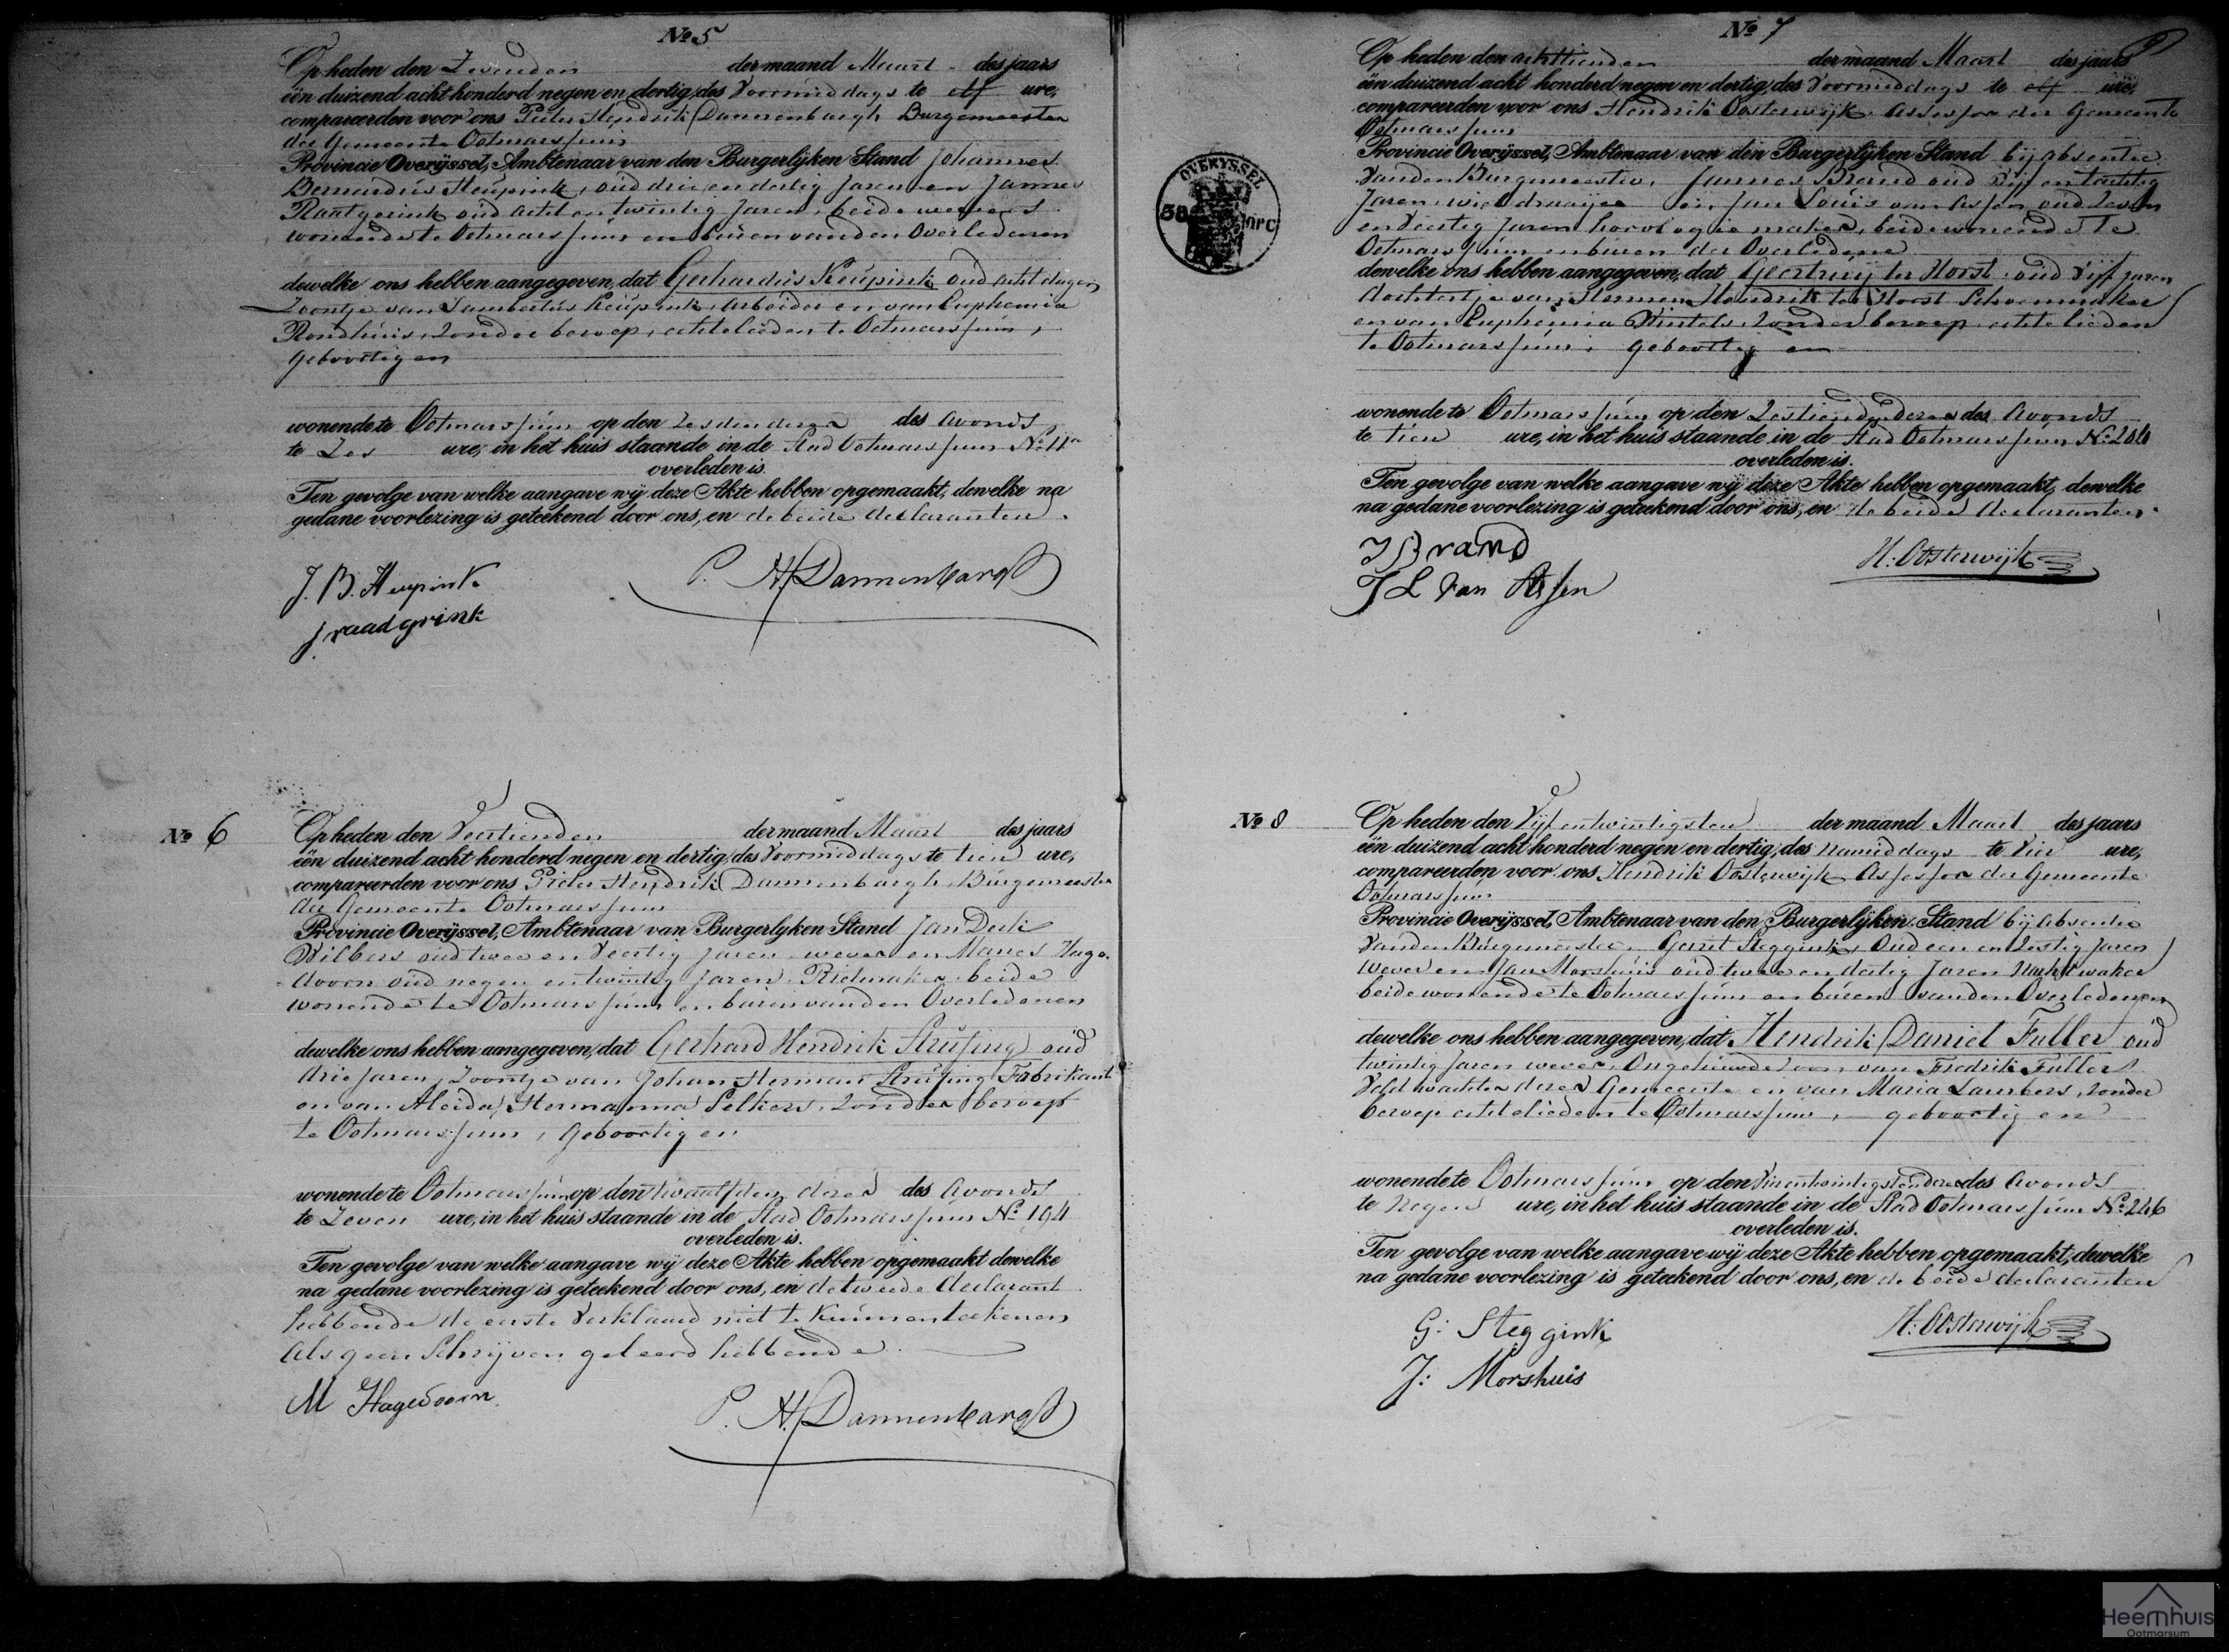 No 5
Op heden den Zevenden der maand Maart des jaars
één duizend acht honderd negen en dertig, des Voormiddags te elf ure,
compareerden voor ons Pieter Hendrik Dannenbargh Burgemeester
der Gemeente Ootmarssum
Provincie Overijssel, Ambtenaar van den Burgerlijken Stand Johannes
Bernardus Heupink, oud drie en dertig Jaren en Jannes
Raatgerink oud acht en twintig Jaren, beide wevers
wonende te Ootmarssum en buren van den Overledenen
dewelke ons hebben aangegeven, dat Gerhardus Keupink oud acht dagen
Zoontje van Lambertus Keupink, arbeider en van Euphemia
Rondhuis, zonder beroep, echtelieden te Ootmarssum,
geboortig en
wonende te Ootmarssum op den Zesden dezer des Avonds
te Zes ure, in het huis staande in de Stad Ootmarssum No 11a
overleden is.
Ten gevolge van welke aangave wij deze Akte hebben opgemaakt, dewelke na
gedane voorlezing is geteekend door ons, en de beide declaranten.
J. B. Heupink
P. H. Dannenbargh
J raadgrink
No 6
Op heden den Veertienden der maand Maart des jaars
één duizend acht honderd negen en dertig, des Voormiddags te tien ure,
compareerden voor ons Pieter Hendrik Dannenbargh, Burgemeester
der Gemeente Ootmarssum
Provincie Overijssel, Ambtenaar van Burgerlyken Stand Jan Derk
Wilbers oud twee en Veertig Jaren wever en Manes Hage-
doorn oud negen en twintig Jaren, Rietmaker beide
wonende te Ootmarssum en buren van den Overledenen
dewelke ons hebben aangegeven, dat Gerhard Hendrik Strüfing oud
drie Jaren, Zoontje van Johan Herman Strüfing Fabrikant
en van Aleida Hermanna Selkers, zonder beroep
te Ootmarssum, Geboortig en
wonende te Ootmarssum op den twaalfden dezer des Avonds
te Zeven ure, in het huis staande in de Stad Ootmarssum No 194
overleden is.
Ten gevolge van welke aangave wij deze Akte hebben opgemaakt dewelke
na gedane voorlezing is geteekend door ons, en de tweede declarant
hebbende de eerste Verklaard niet te kunnen teekenen
als geen Schrijven geleerd hebbende.
M Hagedoorn
P. H. Dannenbargh
No 7
Op heden den achttienden der maand Maart des jaars
één duizend acht honderd negen en dertig, des Voormiddags te elf ure,
compareerden voor ons Hendrik Oosterwijk Assessor der Gemeente
Ootmarssum
Provincie Overijssel, Ambtenaar van den Burgerlijken Stand bij absentie
van den Burgemeester, Jannes Brand oud Vijf en tachtig
Jaren, wieldraayer en Jan Louis van Assen oud Zeven
en Veertig Jaren horologie maker, beide wonende te
Ootmarssum en buren der Overledene
dewelke ons hebben aangegeven, dat Geertruij ter Horst oud Vijf jaren
dochtertje van Hermen Hendrik ter Horst Schoenmaker
en van Euphemia Wintels, zonder beroep echtelieden
te Ootmarssum, geboortig en
wonende te Ootmarssum op den Zestienden dezer des Avonds
te tien ure, in het huis staande in de Stad Ootmarssum No 204
overleden is.
Ten gevolge van welke aangave wij deze Akte hebben opgemaakt, dewelke
na gedane voorlezing is geteekend door ons, en de beide declaranten.
J Brand
H: Oosterwijk
J L van Assen
OVERYSSEL
No 8
Op heden den Vijf en twintigsten der maand Maart des jaars
één duizend acht honderd negen en dertig, des namiddags te Vier ure,
compareerden voor ons Hendrik Oosterwijk Assessor der Gemeente
Ootmarssum
Provincie Overijssel, Ambtenaar van den Burgerlijken Stand bij absentie
van den Burgemeester, Gerrit Steggink, oud een en Zestig Jaren
Wever en Jan Morshuis oud twee en dertig Jaren Nachtwaker
beide wonende te Ootmarssum en buren van den Overledenen
dewelke ons hebben aangegeven, dat Hendrik Daniel Fuller oud
twintig Jaren wever, Ongehuwde zoon van Fredrik Fuller
Veldwachter dezer Gemeente en van Maria Lambers, zonder
beroep echtelieden te Ootmarssum, geboortig en
wonende te Ootmarssum op den Vierentwintigsten dezer des Avonds
te Negen ure, in het huis staande in de Stad Ootmarssum No 246
overleden is.
Ten gevolge van welke aangave wij deze Akte hebben opgemaakt, dewelke
na gedane voorlezing is geteekend door ons, en de beide declaranten
G: Steggink
H: Oosterwijk
J: Morshuis
Heemhuis
Ootmarsum